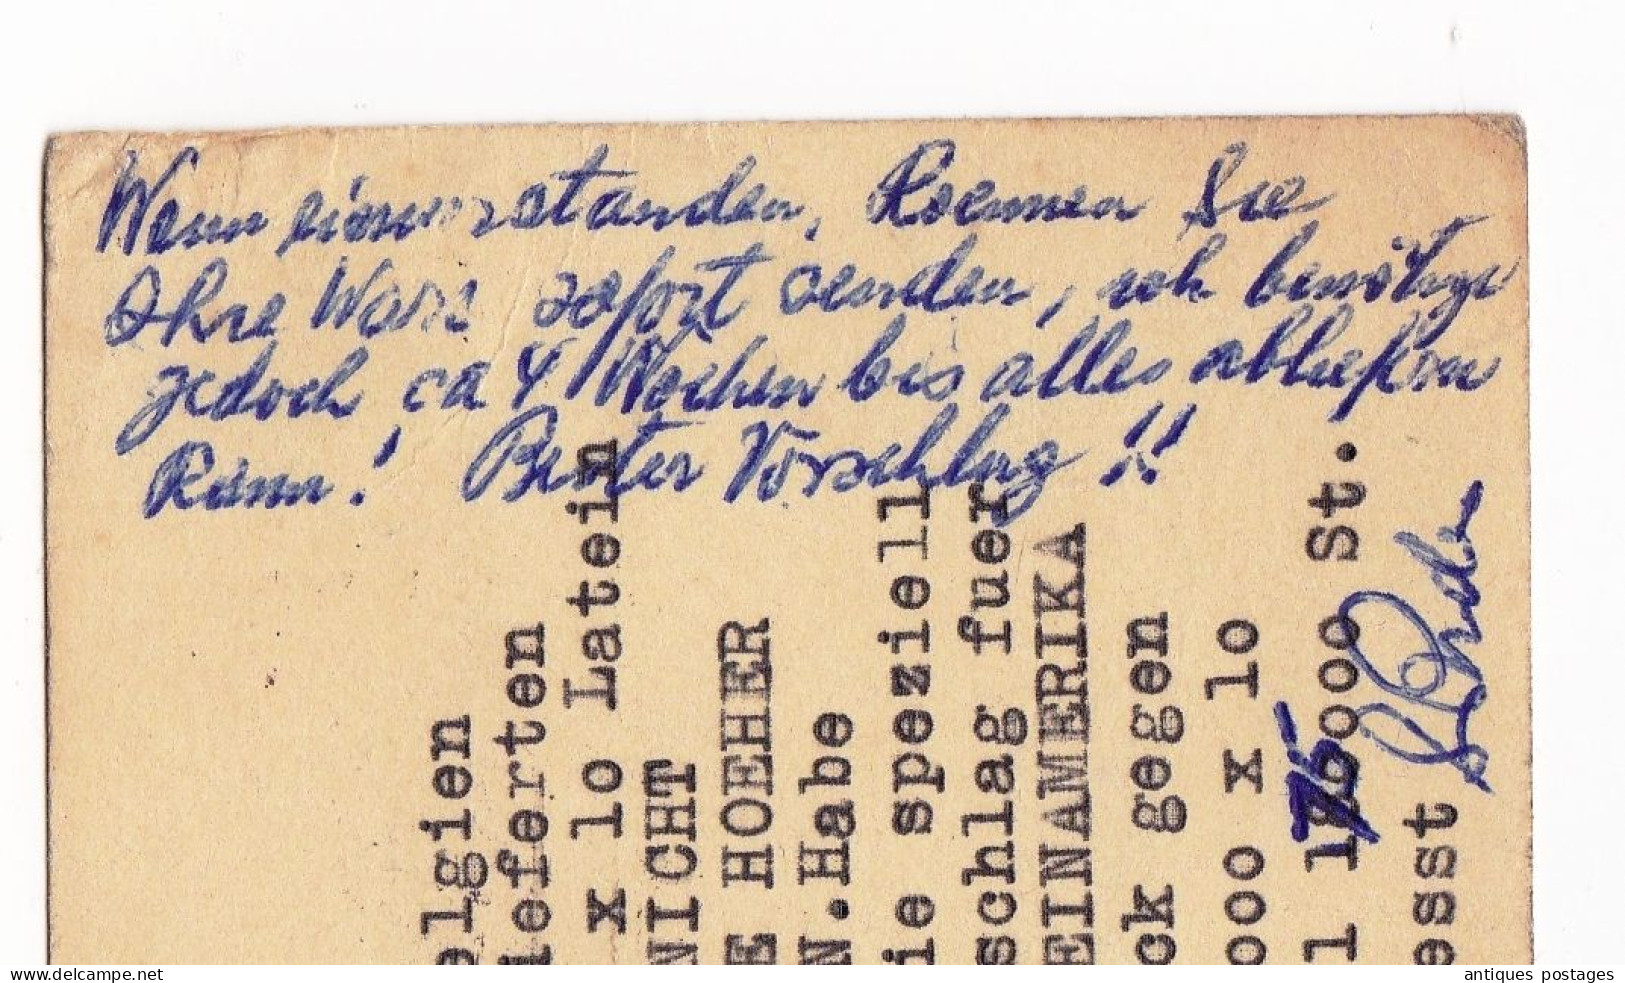 Wenn einverstanden, koennen Sie
Ihre Ware sofort senden, ich benötige
jedoch ca 4 Wochen bis alles abliefern
kann! Bester Vorschlag!!
elgien
ieferten
x lo Latein
NICHT
E HOEHER
N.Habe
ie speziell
schlag fuer
EINAMERIKA
ck gegen
ooo x lo
75
esst
www.delcampe.net
antiques postages